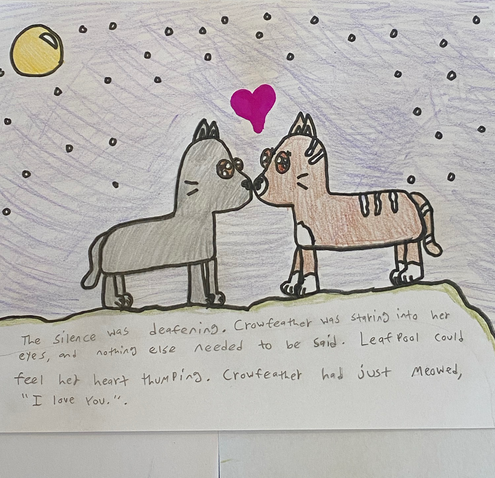 The silence was deafening. Crowfeather was staring into her
eyes, and nothing else needed to be said. Leafpool could
feel her heart thumping. Crowfeather had just meowed,
"I love you.".